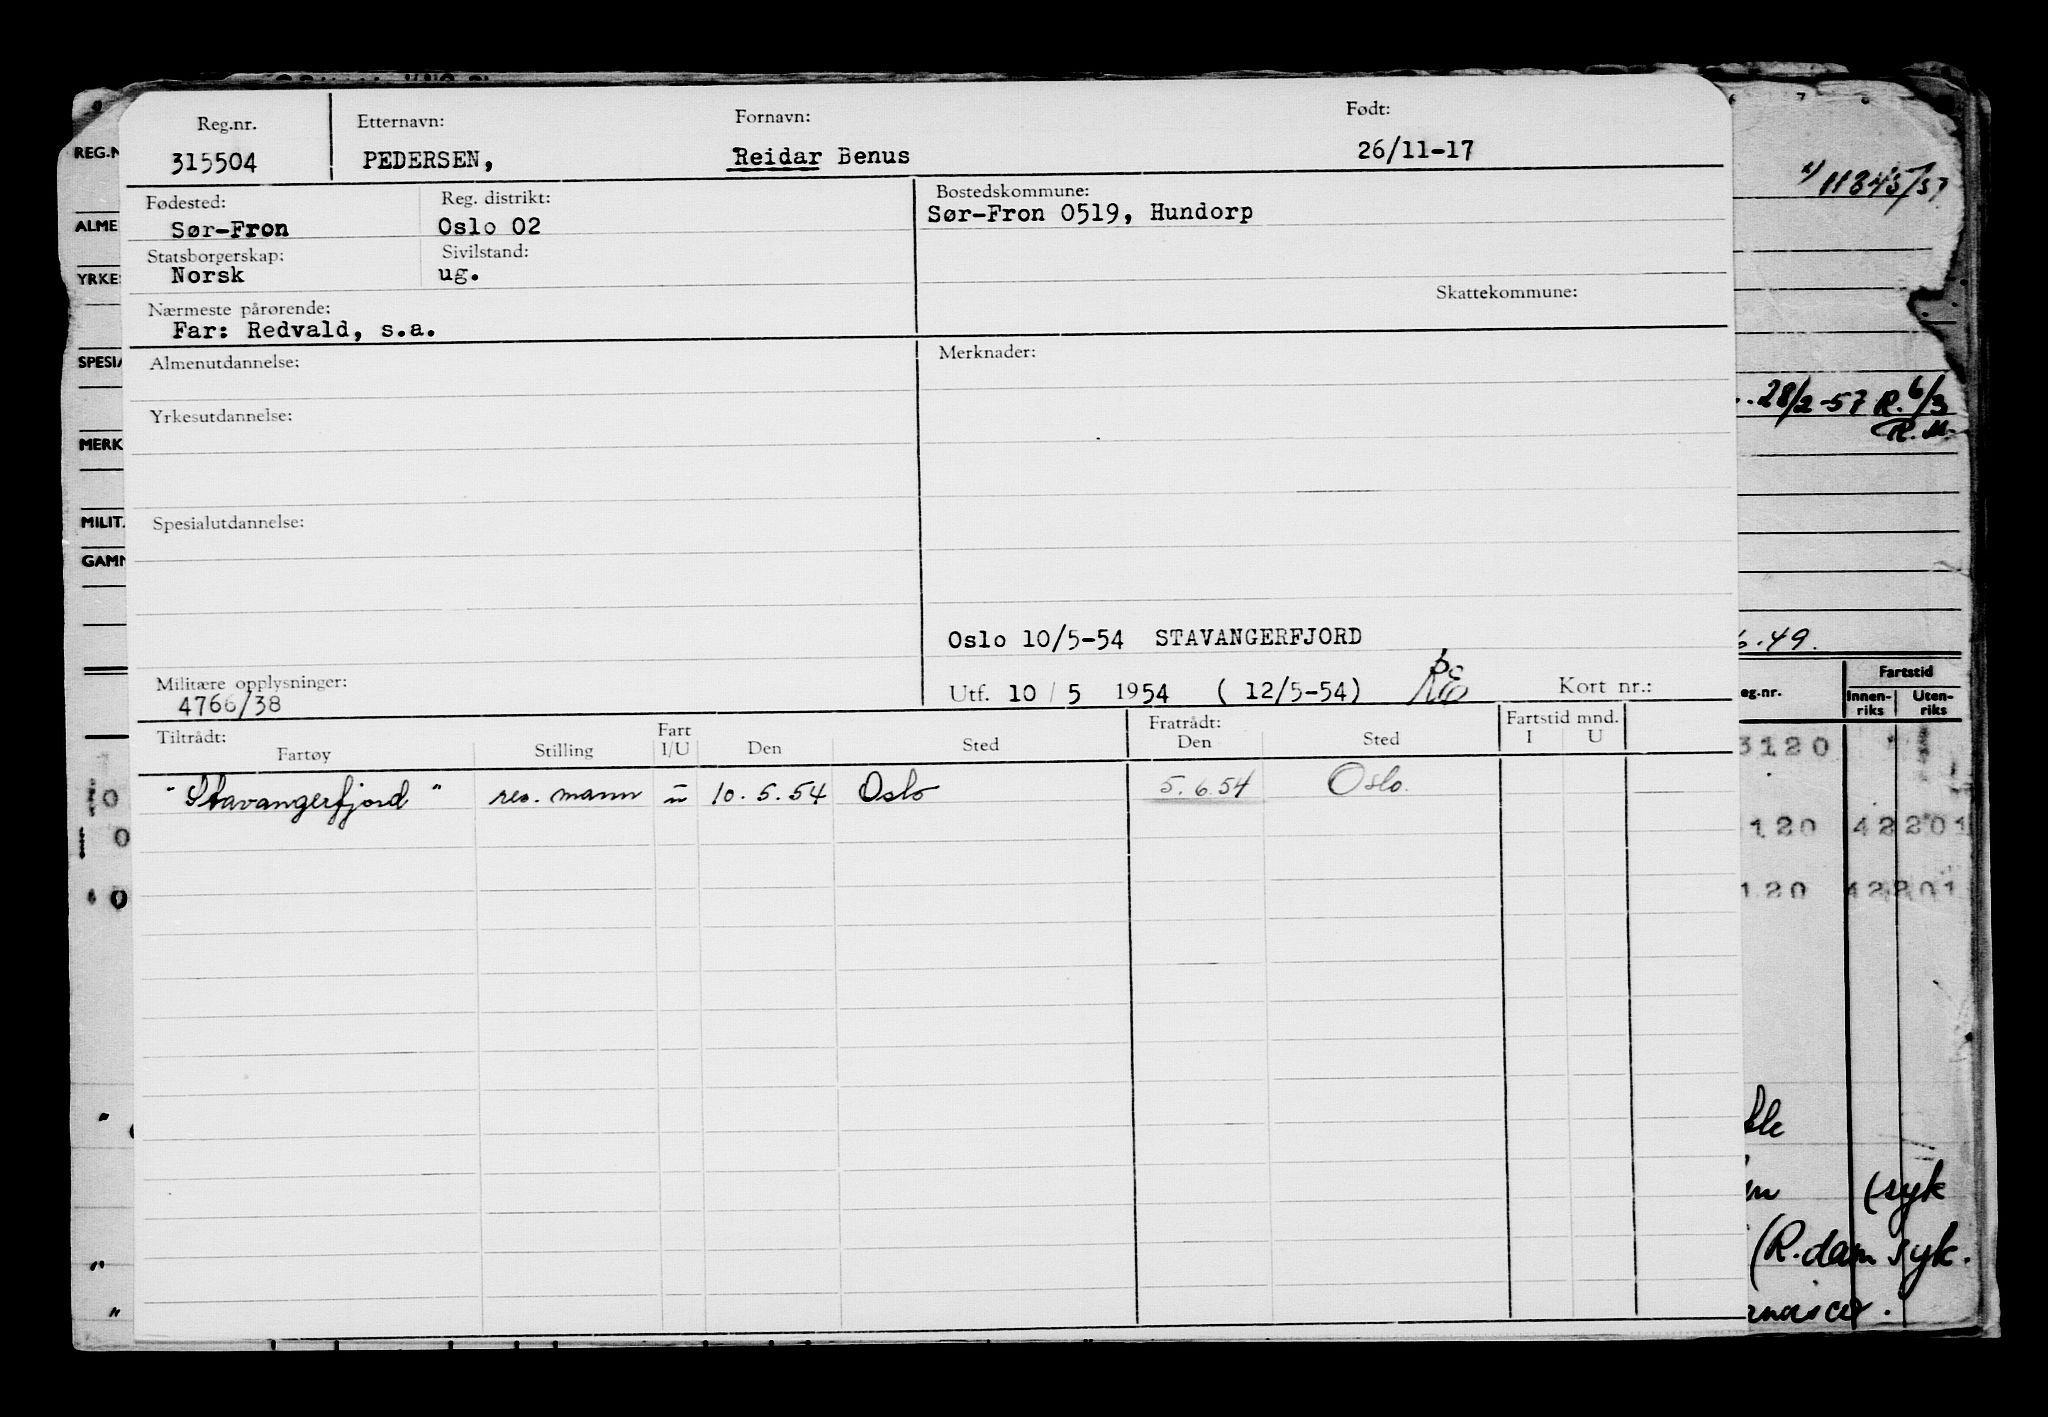 Reg.nr. Etternavn: Fornavn: Født:
315504 PEDERSEN, Reidar Benus 26/11-17
Fødested: Reg. distrikt: Bostedskommune:
Sør-Fron Oslo 02 Sør-Fron 0519, Hundorp
Statsborgerskap: Sivilstand:
Norsk ug.
Skattekommune:
Nærmeste pårørende:
Far: Redvald, s.a.
Almenutdannelse: Merknader:
Yrkesutdannelse:
Spesialutdannelse:
Oslo 10/5-54 STAVANGERFJORD
Militære opplysninger:
4766/38
Utf. 10 / 5 1954 ( 12/5-54) Kort nr.:
Tiltrådt: Fart Fratrådt: Fartstid mnd.
Fartøy Stilling I/U Den Sted Den Sted I U
"Stavangerfjord" res. mann u 10.5.54 Oslo 5.6.54 Oslo.
ALME
YRKES
SPESIA
MERK
MILIT.
GAMM
28/2-57 R. 6/3
R.M.
6.49.
Fartstid
eg.nr. Innen-riks Uten-riks
3120
120 42 201
120 42 201
(syk
(R.dam syk.